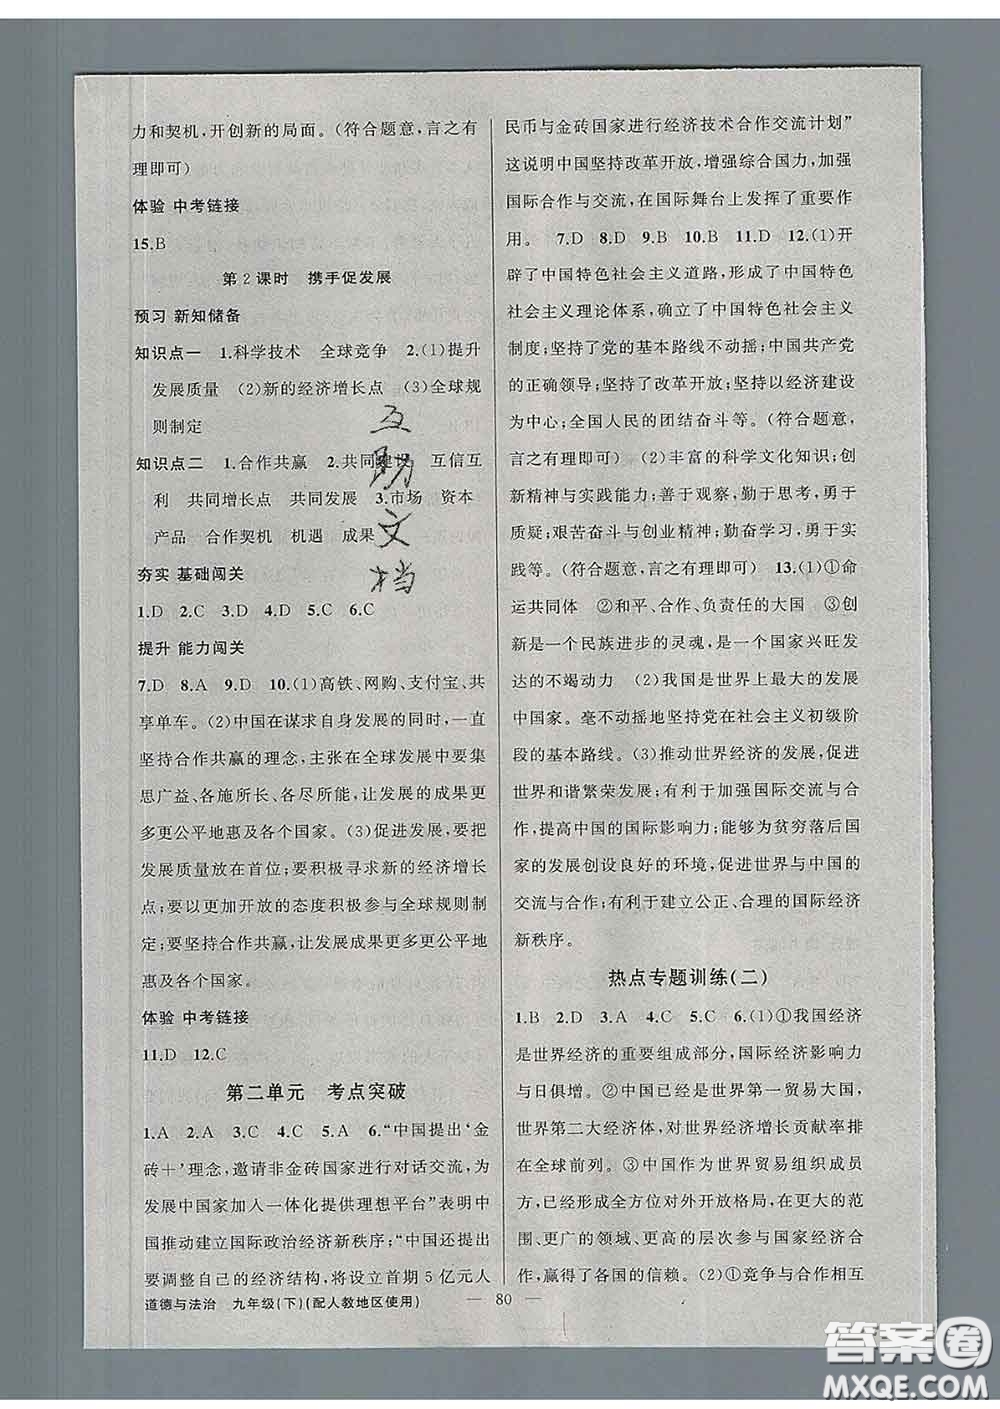 力和契机,开创新的局面。(符合题意,言之有
理即可)
体验 中考链接
15.B
第2课时 携手促发展
预习 新知储备
知识点一 1.科学技术 全球竞争 2.(1)提升
发展质量 (2)新的经济增长点 (3)全球规
则制定
知识点二 1.合作共赢 2.共同建设 互信互
利 共同增长点 共同发展 3.市场 资本
产品 合作契机 机遇 成果
夯实 基础闯关
1.D 2.C 3.D 4.D 5.C 6.C
提升 能力闯关
7.D 8.A 9.D 10.(1)高铁、网购、支付宝、共
享单车。(2)中国在谋求自身发展的同时,一直
坚持合作共赢的理念,主张在全球发展中要集
思广益、各施所长、各尽所能,让发展的成果更
多更公平地惠及各个国家。(3)促进发展,要把
发展质量放在首位;要积极寻求新的经济增长
点;要以更加开放的态度积极参与全球规则制
定;要坚持合作共赢,让发展成果更多更公平地
惠及各个国家。
体验 中考链接
11.D 12.C
第二单元 考点突破
1.A 2.A 3.C 4.C 5.A 6.“中国提出‘金
砖+’理念,邀请非金砖国家进行对话交流,为
发展中国家加入一体化提供理想平台”表明中
国推动建立国际政治经济新秩序;“中国还提出
要调整自己的经济结构,将设立首期5亿元人
道德与法治 九年级(下)(配人教地区使用)
互助文档
民币与金砖国家进行经济技术合作交流计划”
这说明中国坚持改革开放,增强综合国力,加强
国际合作与交流,在国际舞台上发挥了重要作
用。 7.D 8.D 9.B 10.B 11.D 12.(1)开
辟了中国特色社会主义道路,形成了中国特色
社会主义理论体系,确立了中国特色社会主义
制度;坚持了党的基本路线不动摇;中国共产党
的正确领导;坚持了改革开放;坚持以经济建设
为中心;全国人民的团结奋斗等。(符合题意,
言之有理即可) (2)丰富的科学文化知识;创
新精神与实践能力;善于观察,勤于思考,勇于
质疑;艰苦奋斗与创业精神;勤奋学习,勇于实
践等。(符合题意,言之有理即可) 13.(1)①命
运共同体 ②和平、合作、负责任的大国 ③创
新是一个民族进步的灵魂,是一个国家兴旺发
达的不竭动力 (2)我国是世界上最大的发展
中国家。毫不动摇地坚持党在社会主义初级阶
段的基本路线。(3)推动世界经济的发展,促进
世界和谐繁荣发展;有利于加强国际交流与合
作,提高中国的国际影响力;能够为贫穷落后国
家的发展创设良好的环境,促进世界与中国的
交流与合作;有利于建立公正、合理的国际经济
新秩序。
热点专题训练(二)
1.B 2.D 3.A 4.C 5.C 6.(1)①我国经济
是世界经济的重要组成部分,国际经济影响力
与日俱增。②中国已经是世界第一贸易大国,
世界第二大经济体,对世界经济增长贡献率排
在全球前列。③中国作为世界贸易组织成员
方,已经形成全方位对外开放格局,在更大的范
围、更广的领域、更高的层次上参与国家经济合
作,赢得了各国的信赖。(2)①竞争与合作相互
— 80 —
答案圈
MXQE.COM